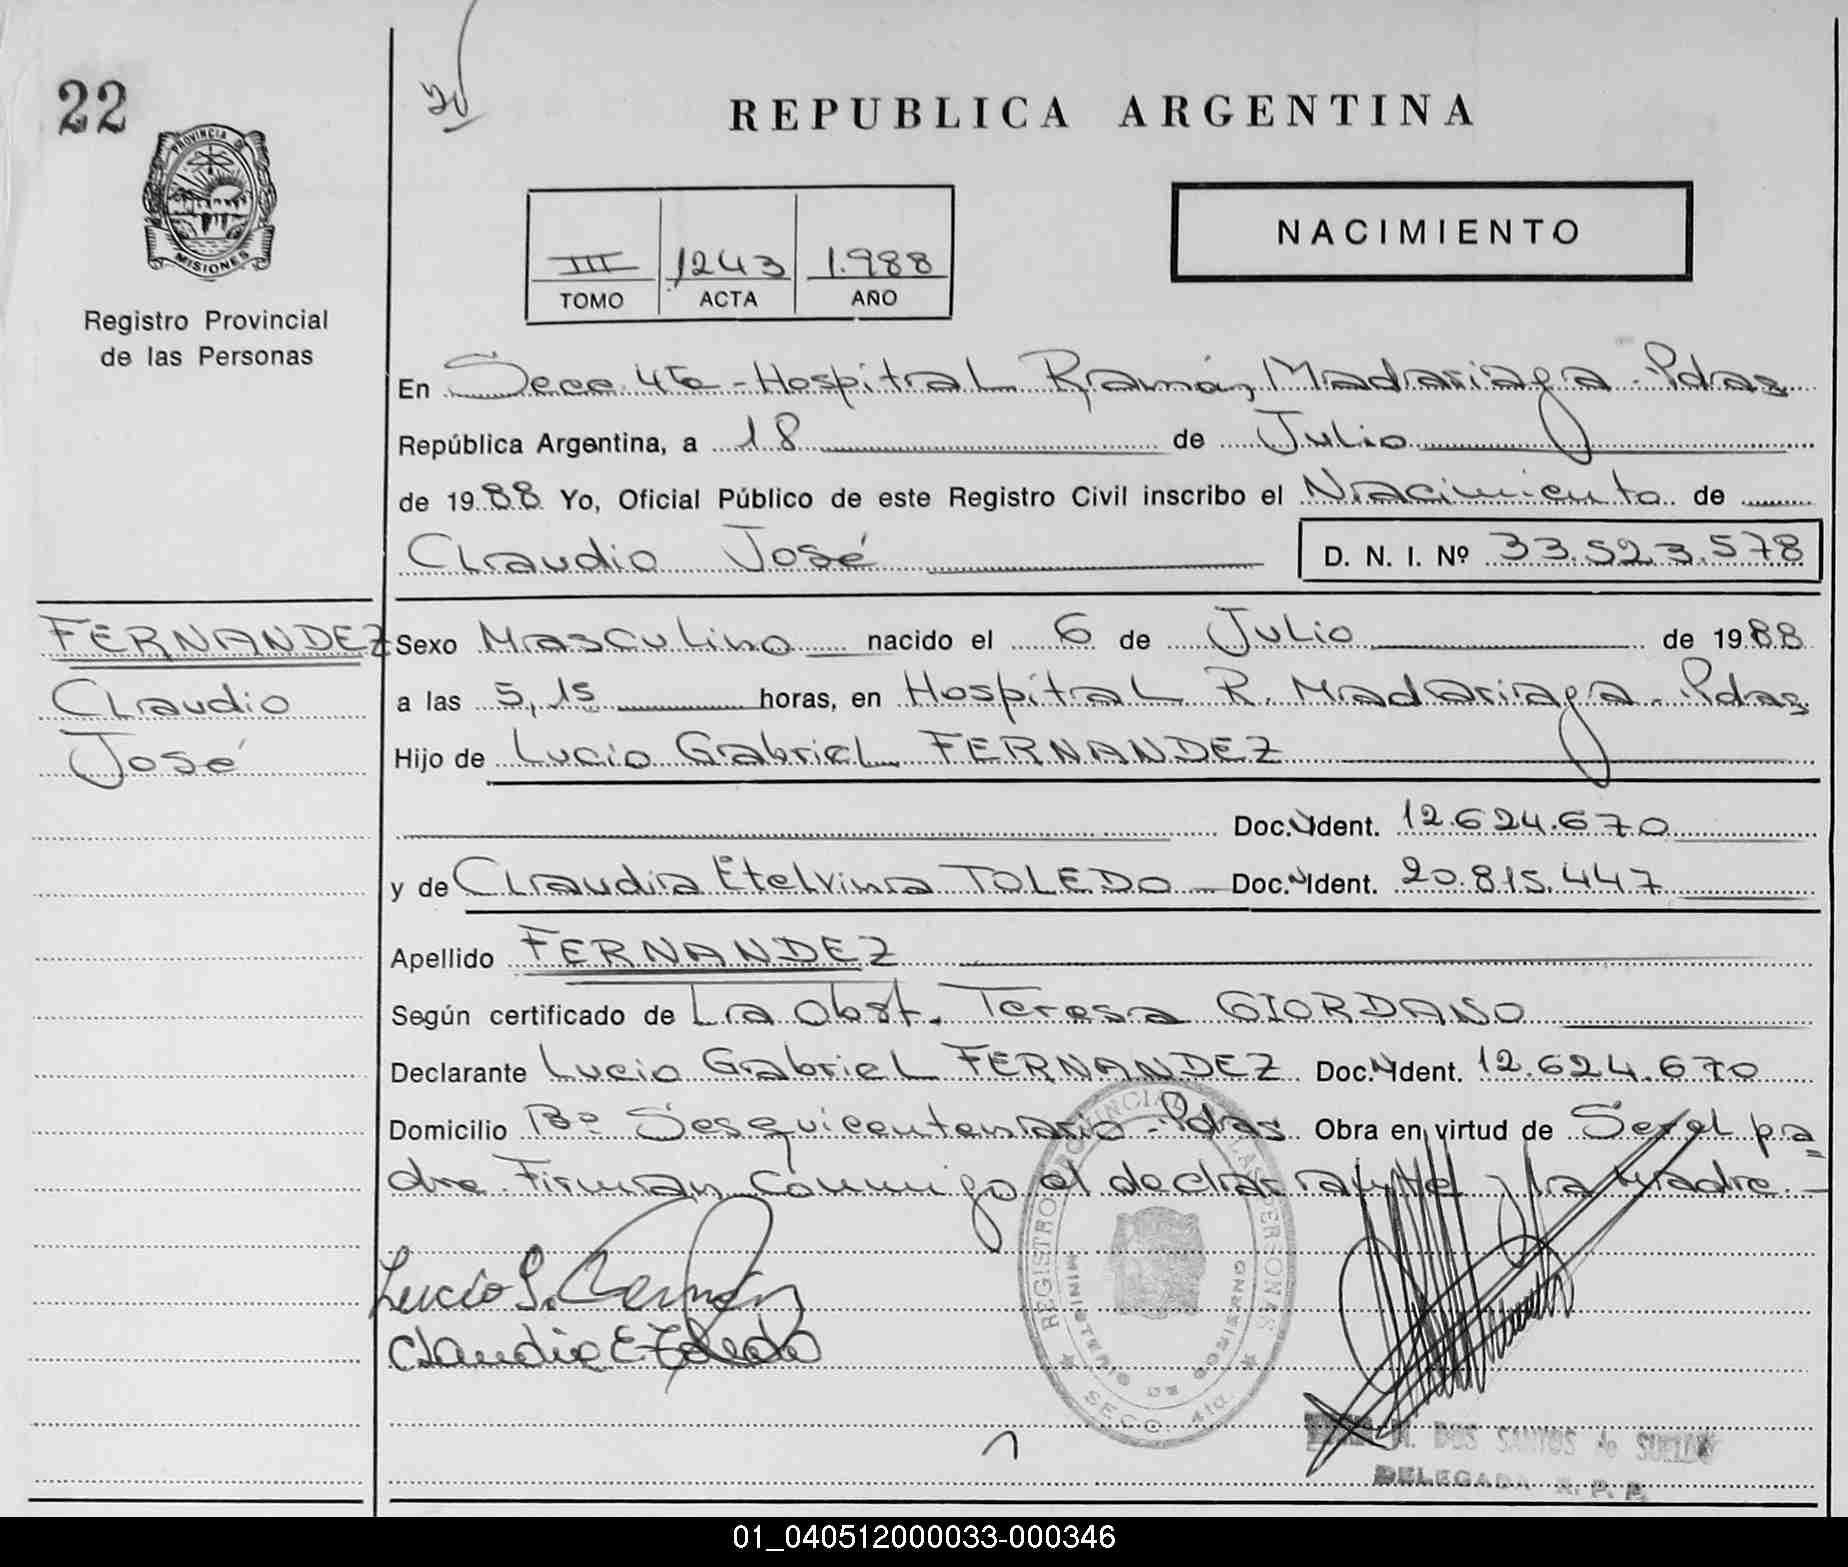 22
PROVINCIA DE
MISIONES
Registro Provincial
de las Personas
REPUBLICA ARGENTINA
NACIMIENTO
III 1243 1.988
TOMO ACTA AÑO
En Secc. 4ta - Hospital Ramón Madariaga - Pdas
República Argentina, a 18 de Julio
de 1988 Yo, Oficial Público de este Registro Civil inscribo el Nacimiento de
Claudio José D. N. I. Nº 33.523.578
FERNANDEZ
Claudio
José
Sexo Masculino nacido el 6 de Julio de 1988
a las 5,15 horas, en Hospital R. Madariaga - Pdas
Hijo de Lucio Gabriel FERNANDEZ
Doc. Ident. 12.624.670
y de Claudia Etelvina TOLEDO Doc. Ident. 20.815.447
Apellido FERNANDEZ
Según certificado de La Obst. Teresa GIORDANO
Declarante Lucio Gabriel FERNANDEZ Doc. Ident. 12.624.670
Domicilio Bº Sesquicentenario - Pdas Obra en virtud de Ser el pa=
dre. Firman conmigo el declarante y la Madre.-
Lucio G. Fernández
Claudia E Toledo
REGISTRO PROVINCIAL DE LAS PERSONAS
MINISTERIO DE GOBIERNO
SECC. 4ta.
M. DOS SANTOS de SUELDO
DELEGADA R. P. P.
01_040512000033-000346